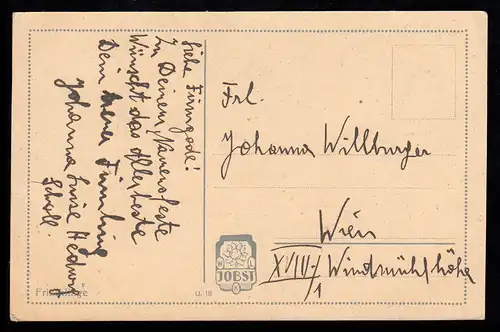 Liebe Firmgode!
Zu Deinem Namensfeste
Wünscht das Allerbeste
Dein Firmling
Johanna Luise Hedwig
Scholl.
Frl.
Johanna Willburger
Wien
XVIII/1 Windmühlhöhe
JOBST
U. 18